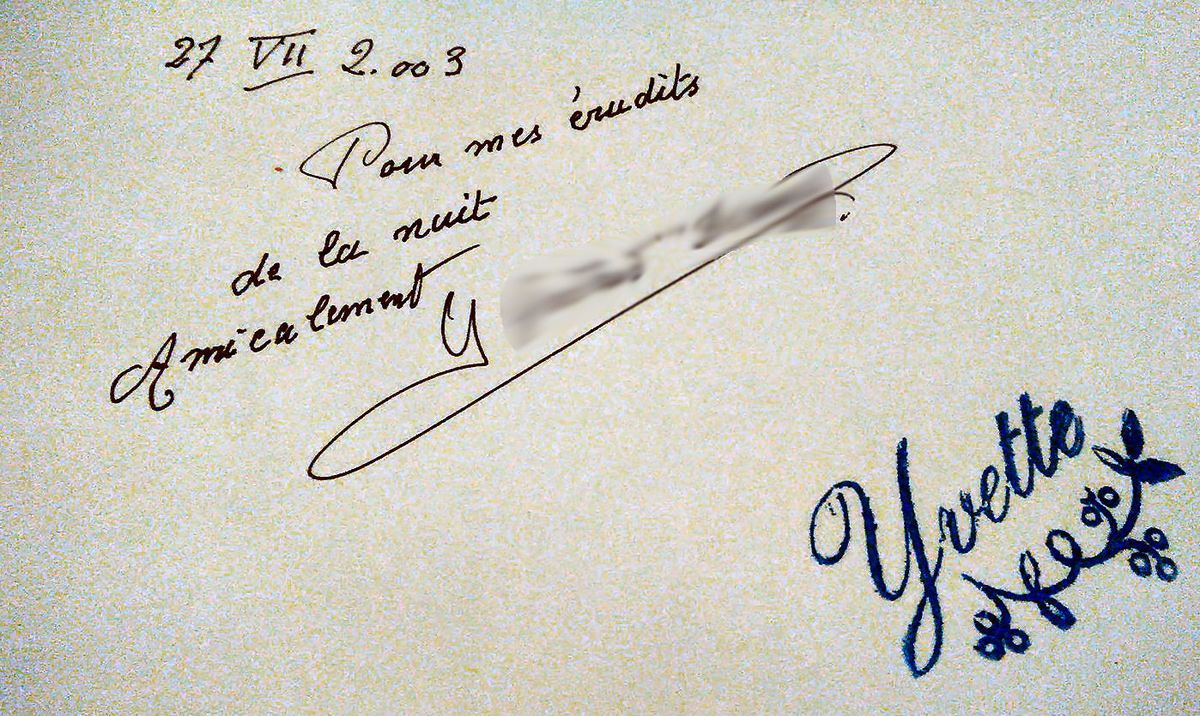 27 VII 2.003
Pour mes érudits
de la nuit
Amicalement
Y
Yvette